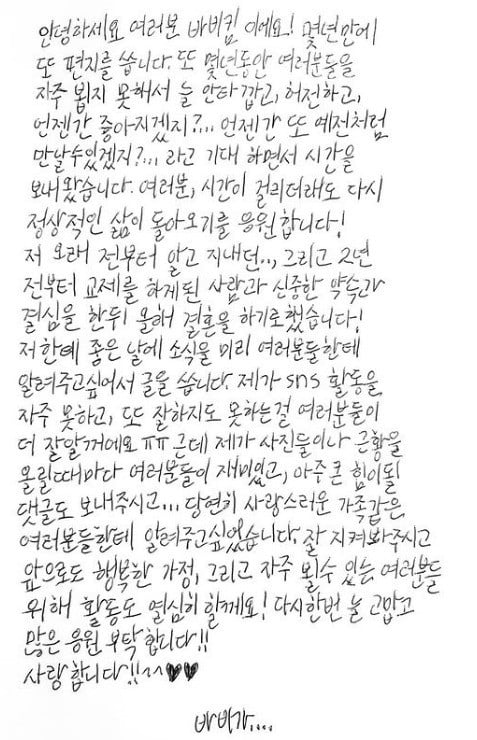 안녕하세요 여러분 바비킴 이에요! 몇년만에
또 편지를 씁니다. 또 몇년동안 여러분들을
자주 뵙지 못해서 늘 안타깝고, 허전하고,
언젠간 좋아지겠지?... 언젠간 또 예전처럼
만날수있겠지?... 라고 기대 하면서 시간을
보내왔습니다. 여러분, 시간이 걸리더래도 다시
정상적인 삶이 돌아오기를 응원합니다!
저 오래 전부터 알고 지내던..., 그리고 2년
전부터 교제를 하게된 사람과 신중한 약속과
결심을 한뒤 올해 결혼을 하기로했습니다!
저한테 좋은 날에 소식을 미리 여러분들한테
알려주고싶어서 글을 씁니다. 제가 sns 활동을
자주 못하고, 또 잘하지도 못하는걸 여러분들이
더 잘알거에요 ㅠㅠ 근데 제가 사진들이나 근황을
올릴때마다 여러분들이 재미있고, 아주 큰 힘이될
댓글도 보내주시고... 당연히 사랑스러운 가족같은
여러분들한테 알려주고싶었습니다. 잘 지켜봐주시고
앞으로도 행복한 가정, 그리고 자주 뵐수 있는 여러분들
위해 활동도 열심히 할께요! 다시한번 늘 고맙고
많은 응원 부탁합니다!!
사랑합니다!!^^♥♥
바비가....